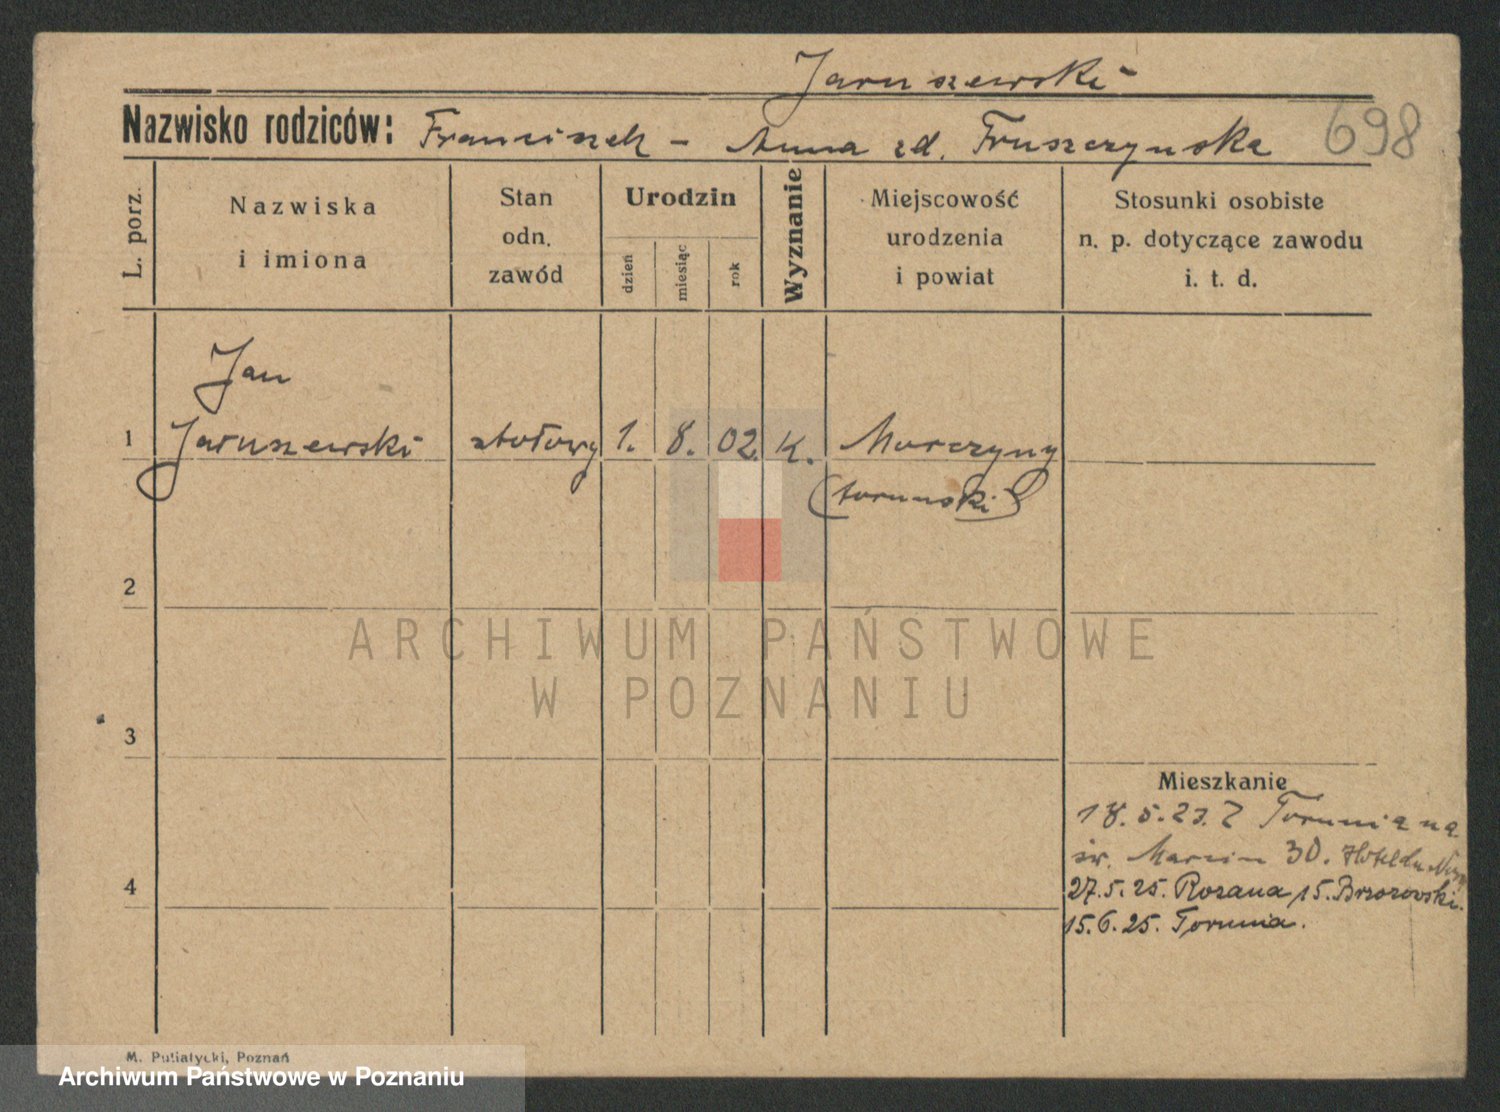 Jaruszewski
Nazwisko rodziców: Franciszek - Anna zd. Fruszczynska 698
L. porz.
Nazwiska
i imiona
Stan
odn.
zawód
Urodzin
dzień
miesiąc
rok
Wyznanie
Miejscowość
urodzenia
i powiat
Stosunki osobiste
n. p. dotyczące zawodu
i. t. d.
Jan
1 Jaruszewski stołowy 1. 8. 02. K. Morczyny
(torunski)
2
ARCHIWUM PAŃSTWOWE
W POZNANIU
3
Mieszkanie
18.5.23. Z Torunia na
św. Marcin 30. Hotel
4
27.5.25. Rozana 15. Brzozowski.
15.6.25. Torunia.
M. Putiatycki, Poznań
Archiwum Państwowe w Poznaniu